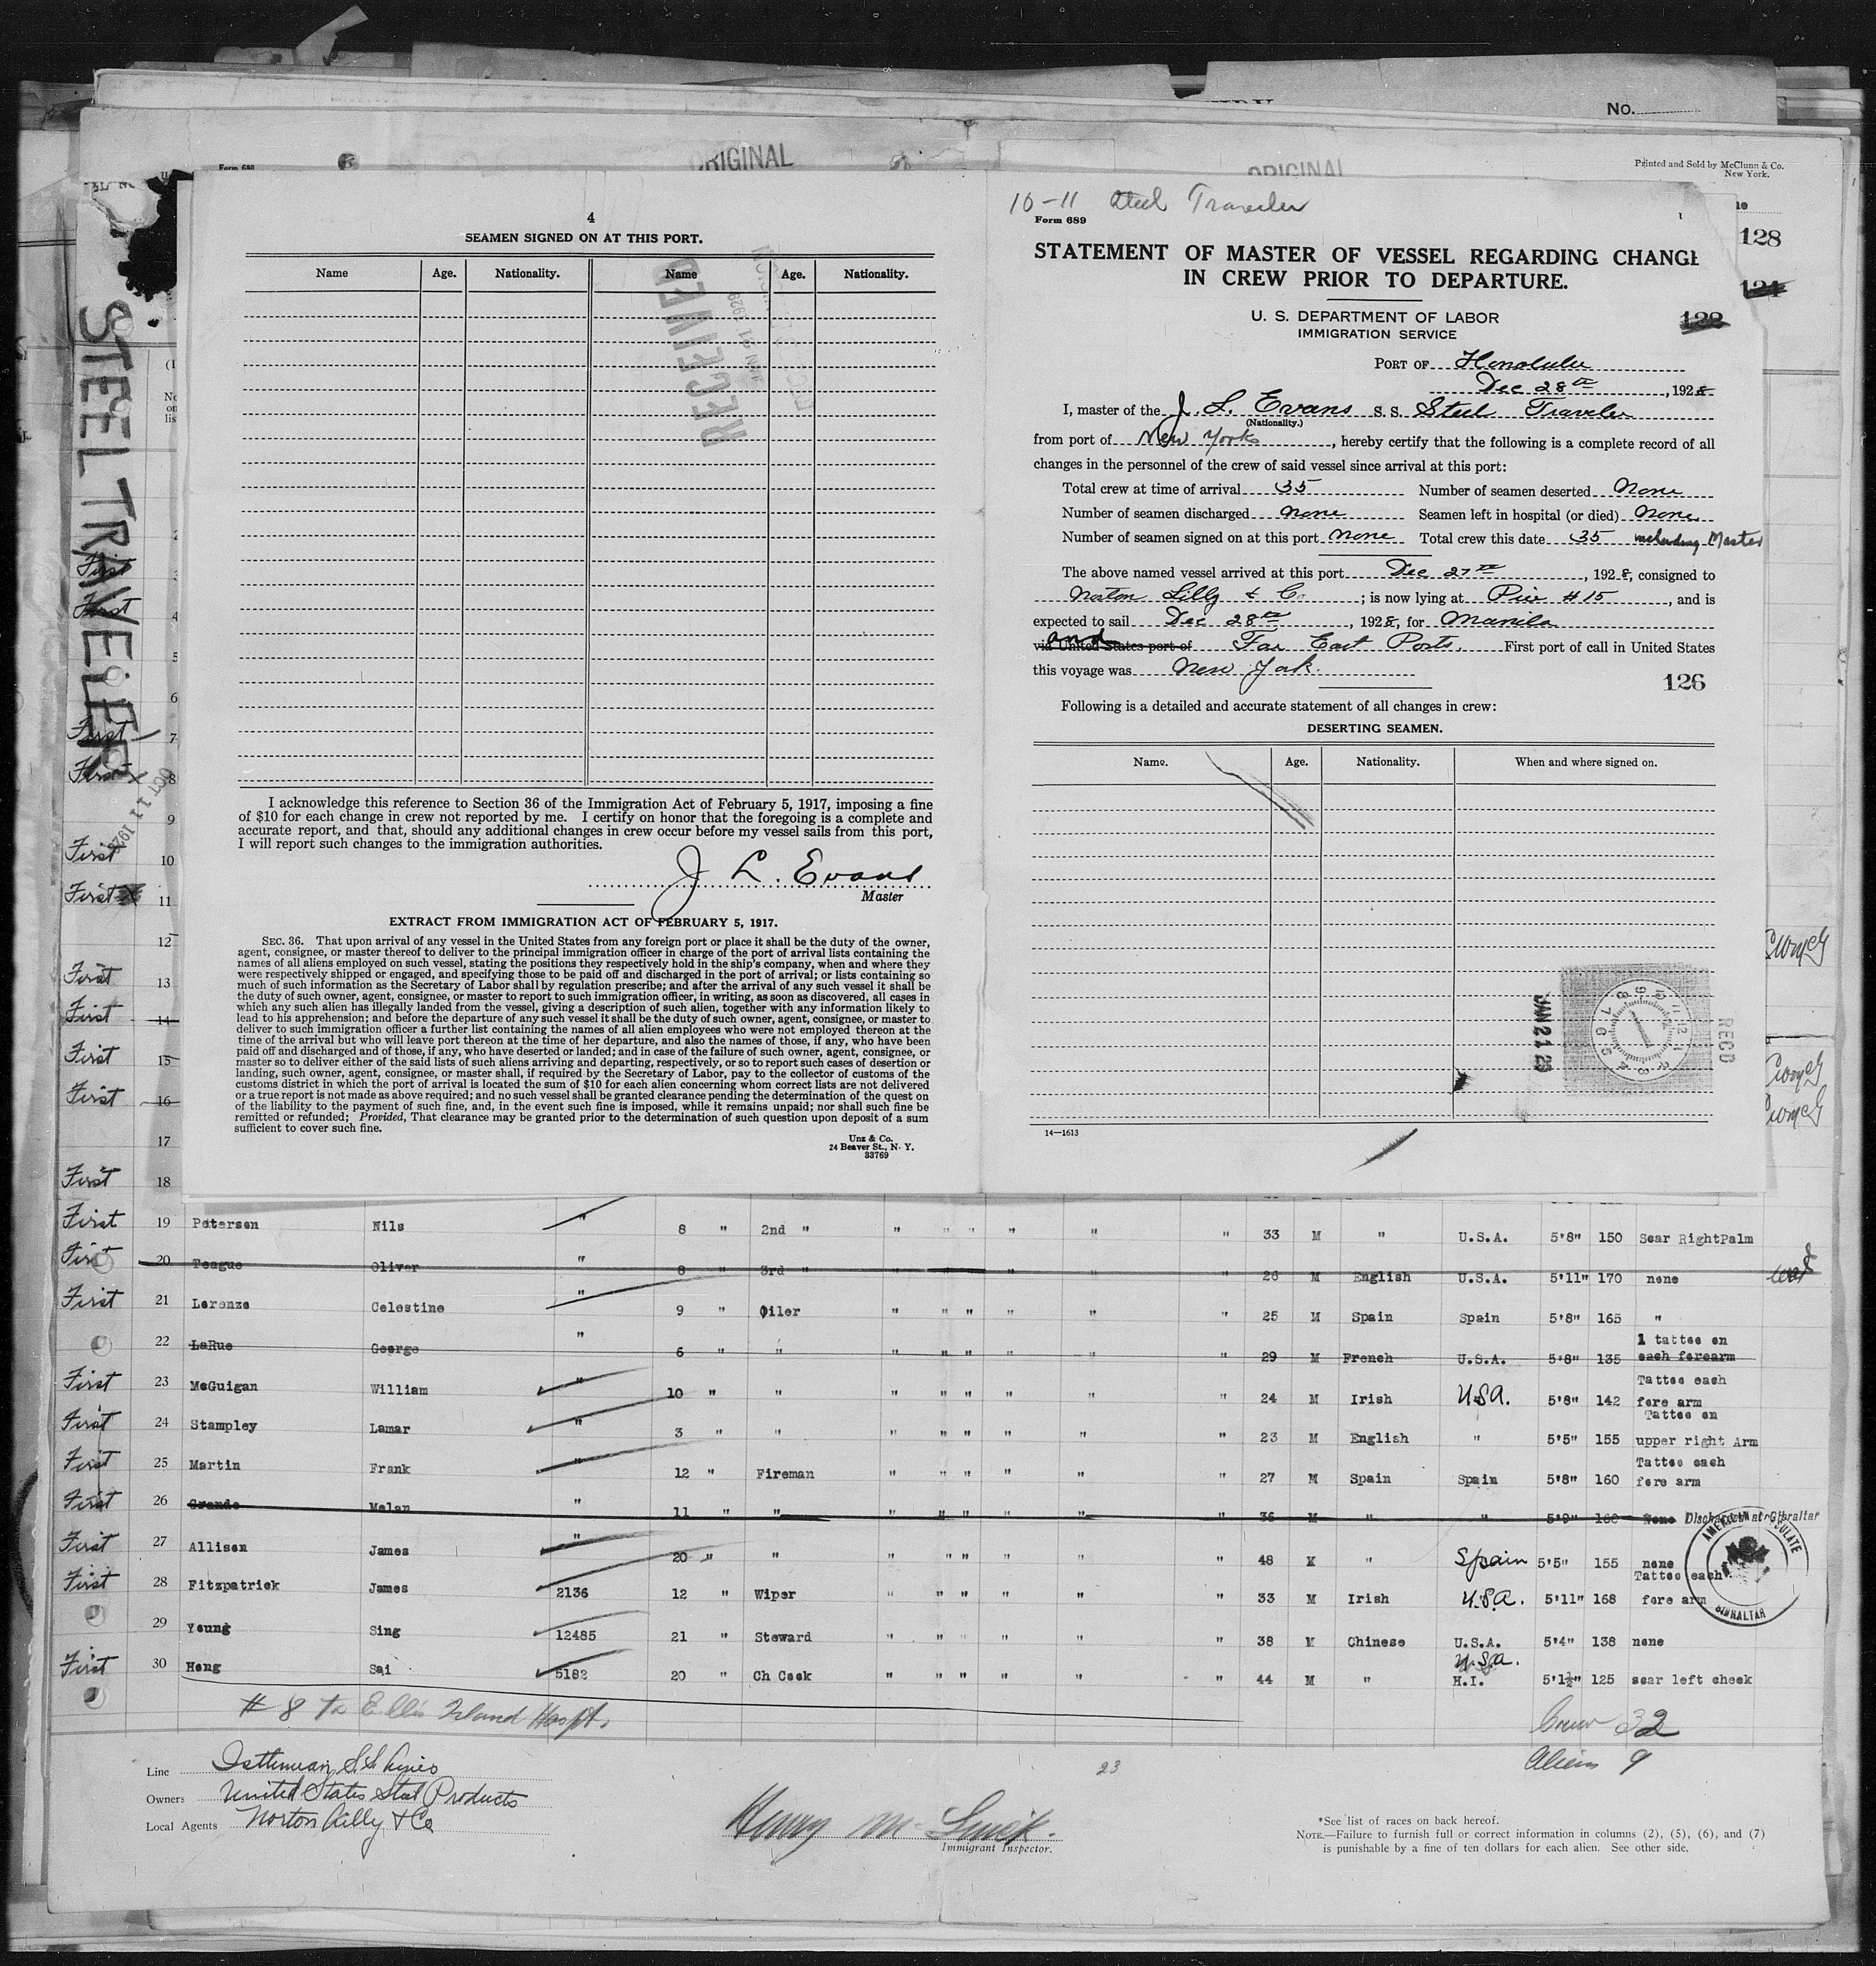 No.
ORIGINAL
ORIGINAL
Form 680
Printed and Sold by McClunn & Co.
New York.
128
124
STEEL TRAVELER
OCT 11 1928
4
SEAMEN SIGNED ON AT THIS PORT.
Name Age. Nationality. Name Age. Nationality.
RECEIVED
I acknowledge this reference to Section 36 of the Immigration Act of February 5, 1917, imposing a fine
of $10 for each change in crew not reported by me. I certify on honor that the foregoing is a complete and
accurate report, and that, should any additional changes in crew occur before my vessel sails from this port,
I will report such changes to the immigration authorities.
J L. Evans
Master
EXTRACT FROM IMMIGRATION ACT OF FEBRUARY 5, 1917.
SEC. 36. That upon arrival of any vessel in the United States from any foreign port or place it shall be the duty of the owner,
agent, consignee, or master thereof to deliver to the principal immigration officer in charge of the port of arrival lists containing the
names of all aliens employed on such vessel, stating the positions they respectively hold in the ship's company, when and where they
were respectively shipped or engaged, and specifying those to be paid off and discharged in the port of arrival; or lists containing so
much of such information as the Secretary of Labor shall by regulation prescribe; and after the arrival of any such vessel it shall be
the duty of such owner, agent, consignee, or master to report to such immigration officer, in writing, as soon as discovered, all cases in
which any such alien has illegally landed from the vessel, giving a description of such alien, together with any information likely to
lead to his apprehension; and before the departure of any such vessel it shall be the duty of such owner, agent, consignee, or master to
deliver to such immigration officer a further list containing the names of all alien employees who were not employed thereon at the
time of the arrival but who will leave port thereon at the time of her departure, and also the names of those, if any, who have been
paid off and discharged and of those, if any, who have deserted or landed; and in case of the failure of such owner, agent, consignee, or
master so to deliver either of the said lists of such aliens arriving and departing, respectively, or so to report such cases of desertion or
landing, such owner, agent, consignee, or master shall, if required by the Secretary of Labor, pay to the collector of customs of the
customs district in which the port of arrival is located the sum of $10 for each alien concerning whom correct lists are not delivered
or a true report is not made as above required; and no such vessel shall be granted clearance pending the determination of the quest on
of the liability to the payment of such fine, and, in the event such fine is imposed, while it remains unpaid; nor shall such fine be
remitted or refunded; Provided, That clearance may be granted prior to the determination of such question upon deposit of a sum
sufficient to cover such fine.
Unz & Co.
24 Beaver St., N. Y.
33769
10-11 Steel Traveler
Form 689
STATEMENT OF MASTER OF VESSEL REGARDING CHANGE
IN CREW PRIOR TO DEPARTURE.
U. S. DEPARTMENT OF LABOR
IMMIGRATION SERVICE
PORT OF Honolulu
Dec 28th, 1928
I, master of the J. L. Evans S. S. Steel Traveler
(Nationality.)
from port of New York, hereby certify that the following is a complete record of all
changes in the personnel of the crew of said vessel since arrival at this port:
Total crew at time of arrival 35 Number of seamen deserted None
Number of seamen discharged none Seamen left in hospital (or died) None
Number of seamen signed on at this port None Total crew this date 35 including Master
The above named vessel arrived at this port Dec 27th, 1928, consigned to
Norton Lilly & Co; is now lying at Pier #15, and is
expected to sail Dec 28th, 1928, for Manila
and
via United States port of Far East Ports. First port of call in United States
this voyage was New York.
126
Following is a detailed and accurate statement of all changes in crew:
DESERTING SEAMEN.
Name. Age. Nationality. When and where signed on.
JAN 21 29
REC'D
14—1613
First 3
First 4
5
6
First 7
First 8
9
First 10
First 11
12
First 13
First 14
First 15
First 16
17
First 18
First 19 Petersen Nils " 8 " 2nd " " " " " " " 33 M " U.S.A. 5'8" 150 Scar RightPalm
First 20 Teague Oliver " 8 " 3rd " " " 26 M English U.S.A. 5'11" 170 none
First 21 Lorenzo Celestine " 9 " Oiler " " " " " " 25 M Spain Spain 5'8" 165 "
22 LaRue George " 6 " " " " " " " " 29 M French U.S.A. 5'8" 135 1 tattoo on
each forearm
First 23 McGuigan William " 10 " " " " " " " " 24 M Irish USA. 5'8" 142 Tattoo each
fore arm
First 24 Stampley Lamar " 3 " " " " " " " " 23 M English " 5'5" 155 Tattoo on
upper right Arm
First 25 Martin Frank " 12 " Fireman " " " " " " 27 M Spain Spain 5'8" 160 Tattoo each
fore arm
First 26 Grande Melan " 11 " " " " " " " " 36 M " " 5'9" 160 None Discharged at Gibraltar
First 27 Allison James " 20 " " " " " " " " 48 M " Spain 5'5" 155 none
First 28 Fitzpatrick James 2136 12 " Wiper " " " " " " 33 M Irish U.S.A. 5'11" 168 Tattoo each
fore arm
29 Young Sing 12485 21 " Steward " " " " " " 38 M Chinese U.S.A. 5'4" 138 none
First 30 Hong Sai 5182 20 " Ch Cook " " " " " " 44 M " U.S.A.
H.I. 5'1½" 125 scar left cheek
AMERICAN CONSULATE
GIBRALTAR
# 8 to Ellis Island Hospt.
Crew 32
Aliens 9
23
Line Isthmian S.S. Lines
Owners United States Steel Products
Local Agents Norton Lilly & Co
Immigrant Inspector.
*See list of races on back hereof.
NOTE.—Failure to furnish full or correct information in columns (2), (5), (6), and (7)
is punishable by a fine of ten dollars for each alien. See other side.